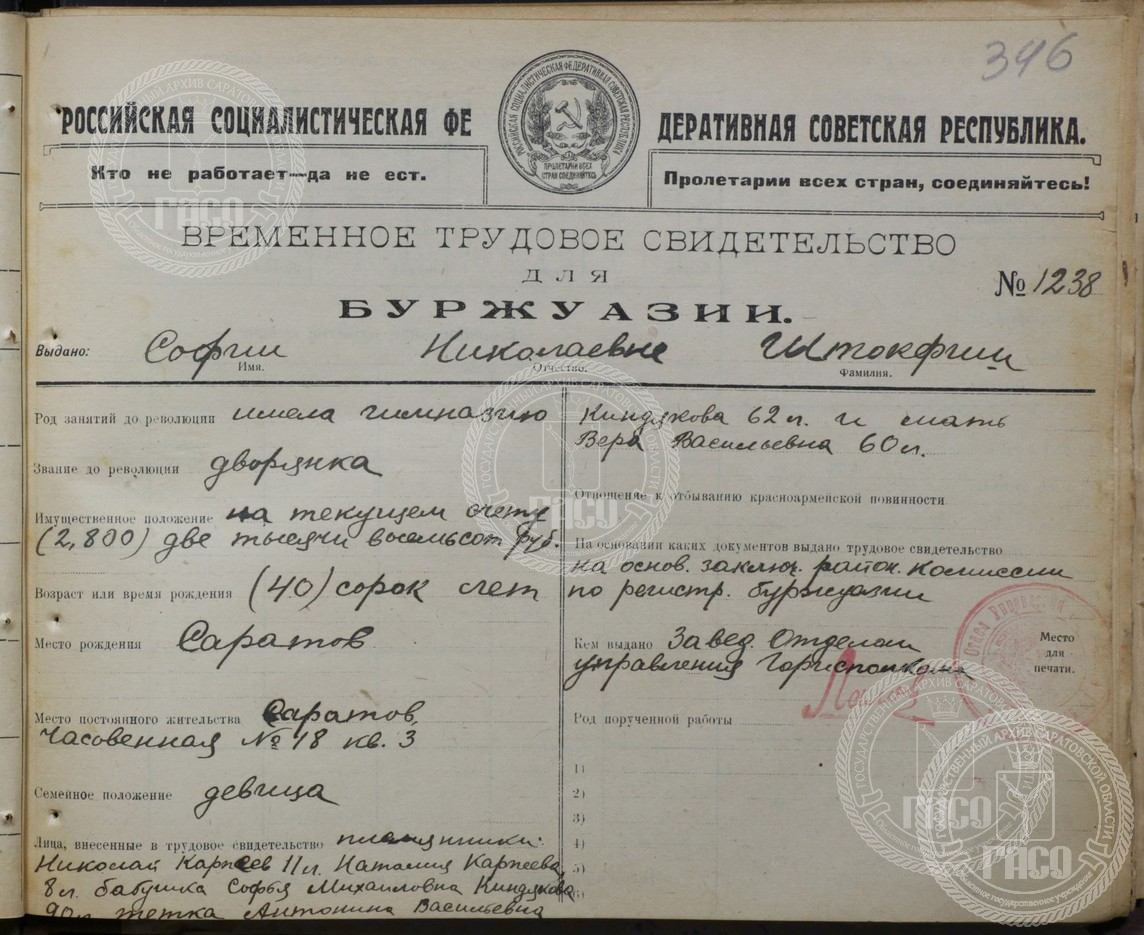 346
РОССИЙСКАЯ СОЦИАЛИСТИЧЕСКАЯ ФЕ ДЕРАТИВНАЯ СОВЕТСКАЯ РЕСПУБЛИКА.
РОССИЙСКАЯ СОЦИАЛИСТИЧЕСКАЯ ФЕДЕРАТИВНАЯ СОВЕТСКАЯ РЕСПУБЛИКА
ПРОЛЕТАРИИ ВСЕХ
СТРАН СОЕДИНЯЙТЕСЬ
Кто не работает—да не ест.
Пролетарии всех стран, соединяйтесь!
ВРЕМЕННОЕ ТРУДОВОЕ СВИДЕТЕЛЬСТВО
ДЛЯ
№ 1238
БУРЖУАЗИИ.
Выдано: Софии Николаевне Штокфиш
Имя. Отчество. Фамилия.
Род занятий до революции имела гимназию
Звание до революции дворянка
Имущественное положение на текущем счету
(2,800) две тысячи восемьсот руб.
Возраст или время рождения (40) сорок лет
Место рождения Саратов
Место постоянного жительства Саратов,
Часовенная № 18 кв. 3
Семейное положение девица
Лица, внесенные в трудовое свидетельство племянники:
Николай Карпеев 11 л. Наталия Карпеева
8 л. бабушка Софья Михаиловна Киндякова
90 л. тетка Антонина Васильевна
Киндякова 62 л. и мать
Вера Васильевна 60 л.
Отношение к отбыванию красноармейской повинности
На основании каких документов выдано трудовое свидетельство
на основ. заключ. район. Комиссии
по регистр. буржуазии
Кем выдано Завед. Отделом
управления Горисполкома
Место
для
печати.
Род порученной работы
1)
2)
3)
4)
5)
6)
ГОСУДАРСТВЕННЫЙ АРХИВ САРАТОВСКОЙ ОБЛАСТИ
ГАСО